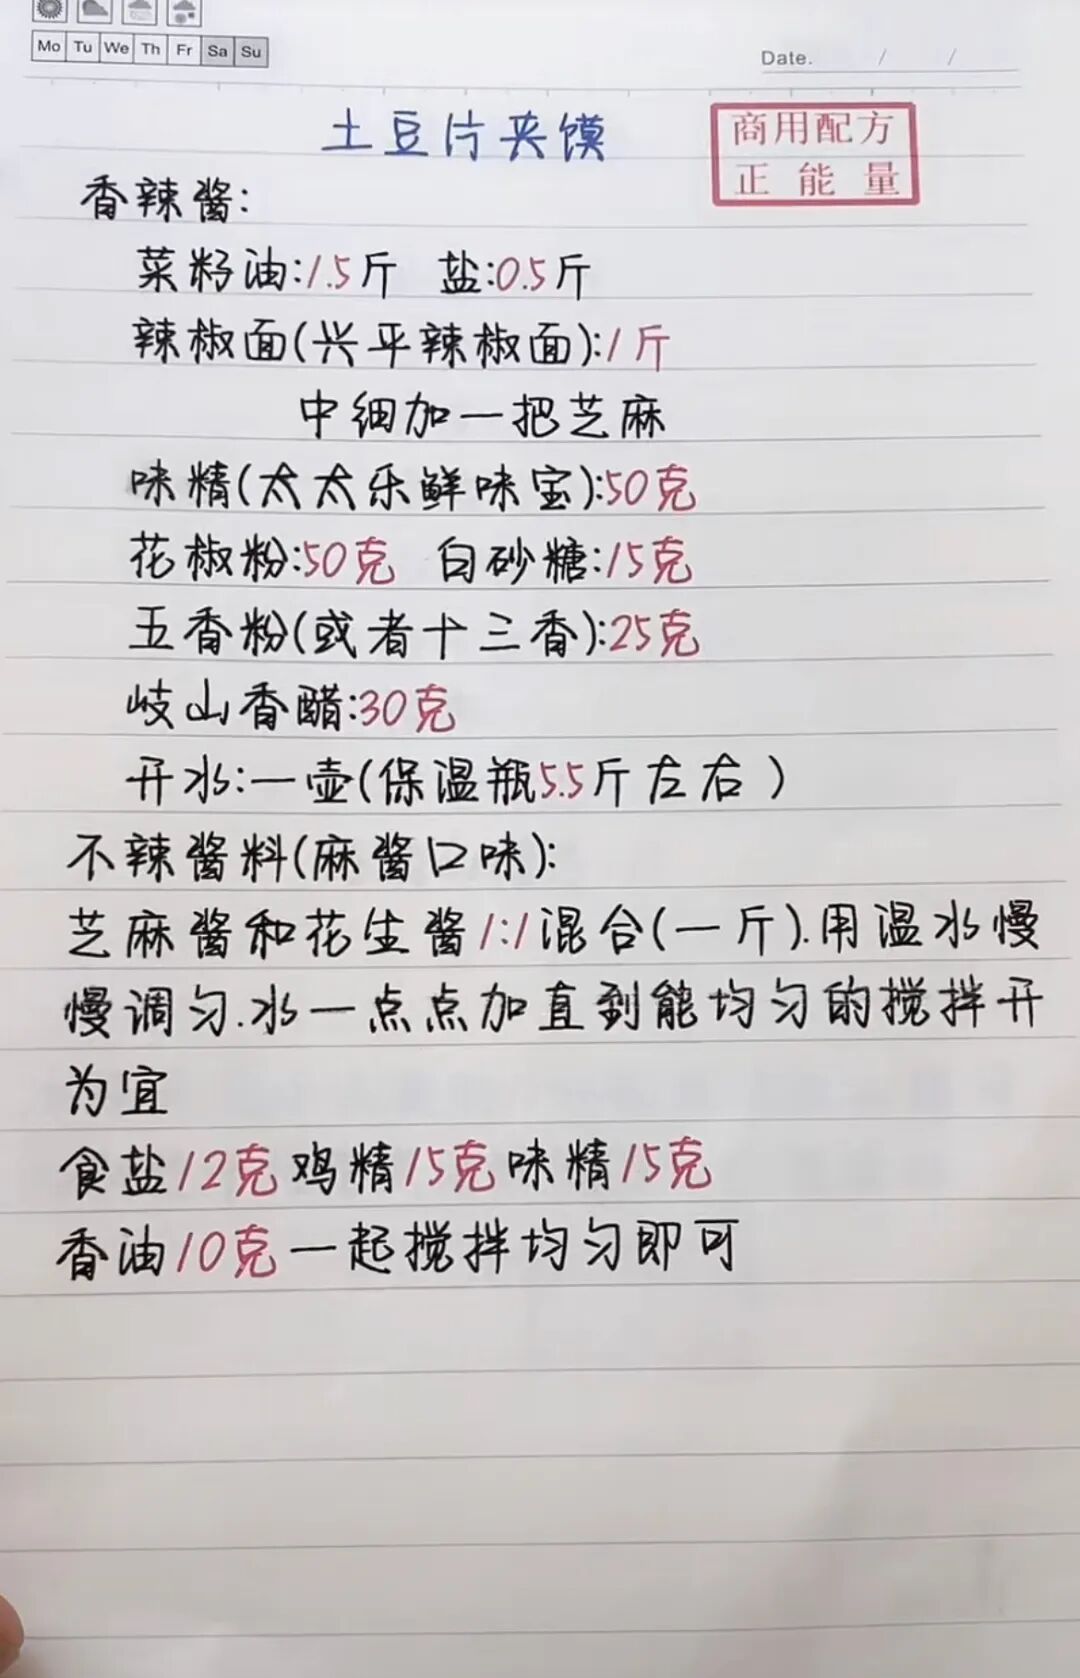 Mo Tu We Th Fr Sa Su
Date. / /
土豆片夹馍
商用配方
正能量
香辣酱:
菜籽油:1.5斤 盐:0.5斤
辣椒面(兴平辣椒面):1斤
中细加一把芝麻
味精(太太乐鲜味宝):50克
花椒粉:50克 白砂糖:15克
五香粉(或者十三香):25克
岐山香醋:30克
开水:一壶(保温瓶5.5斤左右)
不辣酱料(麻酱口味):
芝麻酱和花生酱1:1混合(一斤).用温水慢
慢调匀.水一点点加直到能均匀的搅拌开
为宜
食盐12克鸡精15克味精15克
香油10克一起搅拌均匀即可